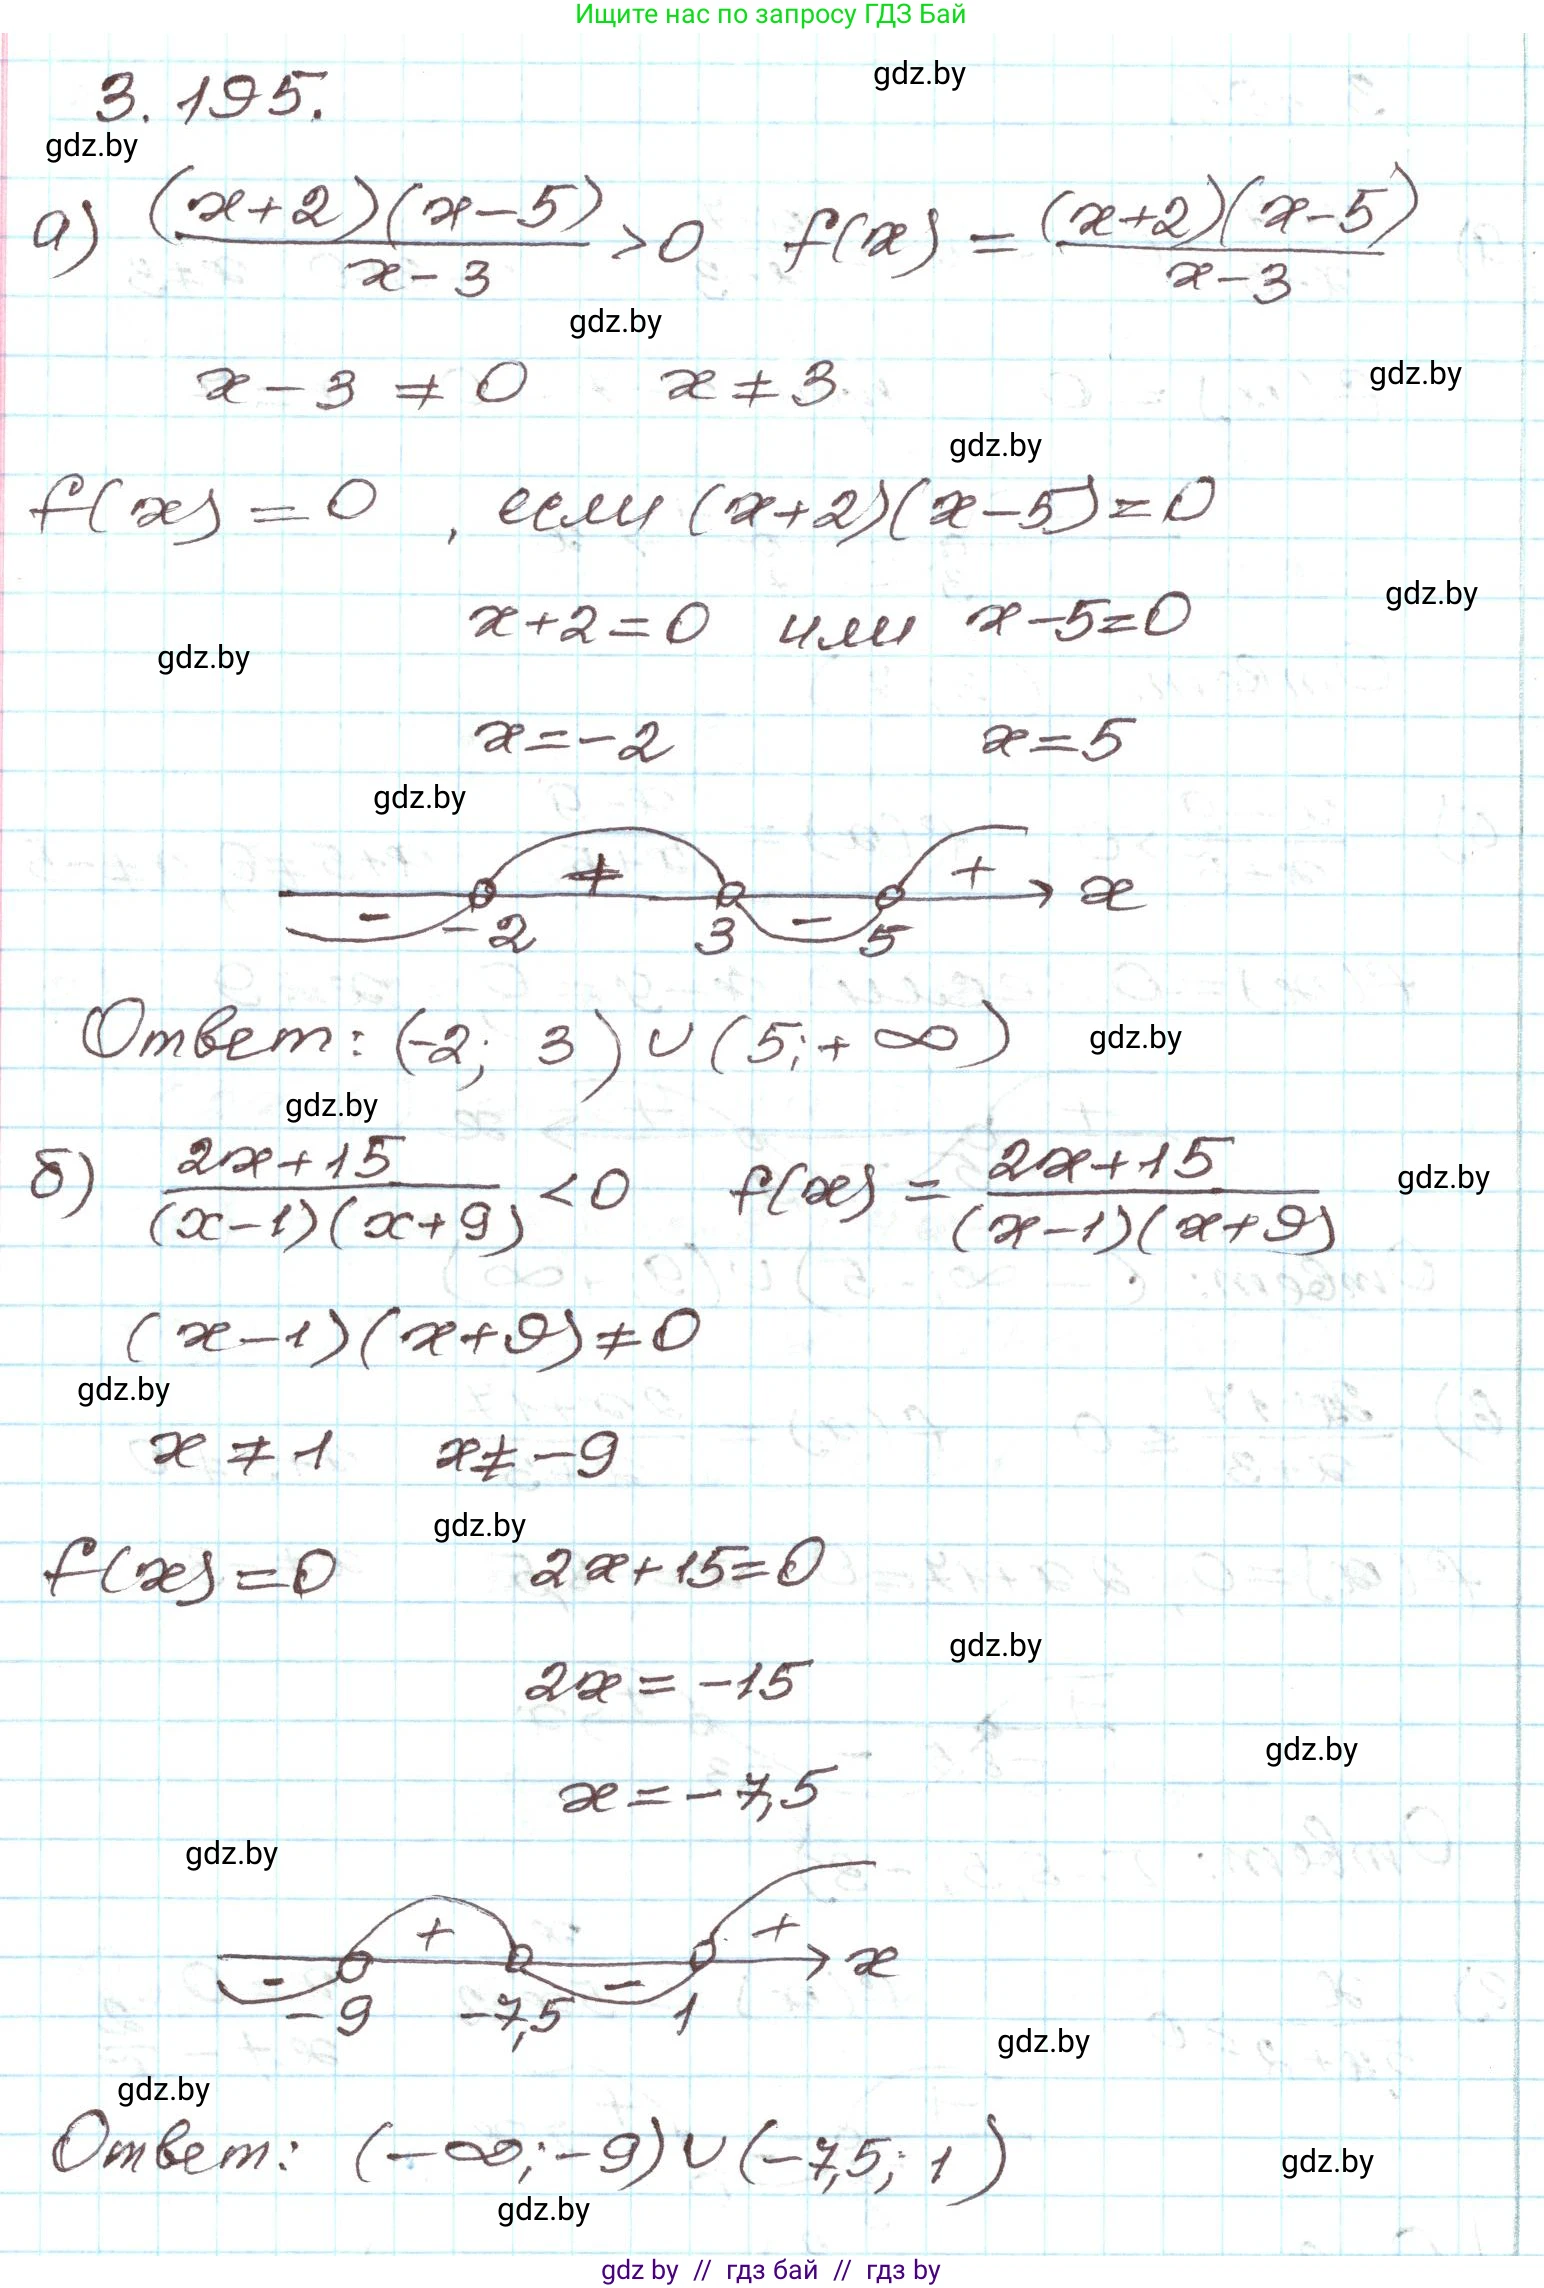 Ищите нас по запросу ГДЗ Бай
gdz.by
3.195.
gdz.by
а) (x+2)(x-5)/(x-3) >0 f(x) = (x+2)(x-5)/(x-3)
gdz.by
x-3 ≠ 0 x ≠ 3
gdz.by
gdz.by
f(x) = 0, если (x+2)(x-5)=0
gdz.by
x+2=0 или x-5=0
gdz.by
x=-2 x=5
gdz.by
- + - + x
-2 3 5
Ответ: (-2; 3) ∪ (5; +∞)
gdz.by
gdz.by
б) 2x+15/((x-1)(x+9)) <0 f(x) = 2x+15/((x-1)(x+9))
gdz.by
(x-1)(x+9)≠0
gdz.by
x ≠ 1 x≠ -9
gdz.by
f(x)=0 2x+15=0
gdz.by
2x = -15
gdz.by
x=-7,5
gdz.by
- + - + x
-9 -7,5 1
gdz.by
gdz.by
Ответ: (-∞; -9) ∪ (-7,5; 1)
gdz.by
gdz.by
gdz by // гдз бай // гдз by